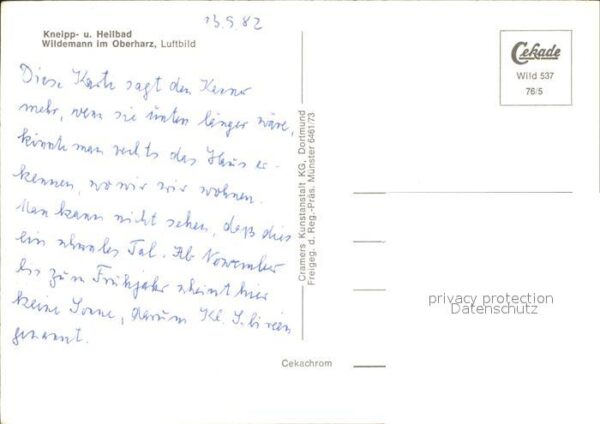 13.9.82
Kneipp- u. Heilbad
Wildemann im Oberharz, Luftbild
Diese Karte sagt den Kenner
mehr, wenn sie unten länger wäre,
könnte man rechts das Haus er-
kennen, wo wir wir wohnen.
Man kann nicht sehen, daß dies
ein schmales Tal. Ab November
bis zum Frühjahr scheint hier
keine Sonne, darum Kl. Sibirien
genannt.
Cramers Kunstanstalt KG, Dortmund
Freigeg. d. Reg.-Präs. Münster 6461/73
Cekachrom
Cekade
Wild 537
76/5
privacy protection
Datenschutz